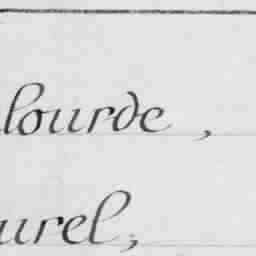 lourde,
urel,